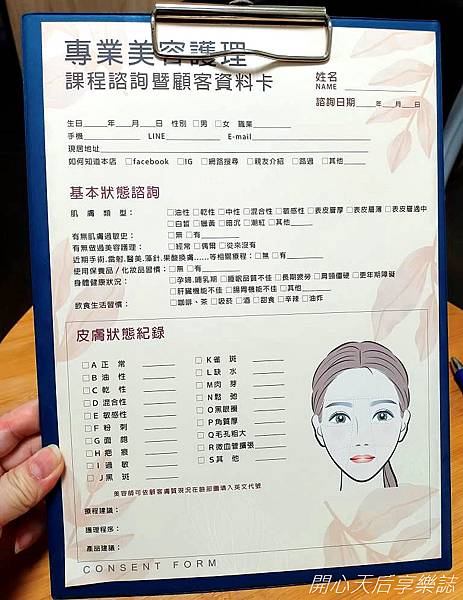 專業美容護理
課程諮詢暨顧客資料卡
姓名
NAME
諮詢日期____年____月____日
生日____年____月____日 性別 □男 □女 職業________
手機________ LINE________ E-mail________
現居地址________
如何知道本店 □facebook □IG □網路搜尋 □親友介紹 □路過 □其他____
基本狀態諮詢
肌膚類型： □油性 □乾性 □中性 □混合性 □敏感性 □表皮層厚 □表皮層薄 □表皮層適中
□白皙 □蠟黃 □暗沉 □潮紅 □其他____
有無肌膚過敏史： □無 □有________
有無做過美容護理： □經常 □偶爾 □從來沒有
近期手術.雷射.醫美.藻針.果酸換膚......等相關療程：□無 □有________
使用保養品/化妝品習慣：□無 □有________
身體健康狀況： □孕婦.哺乳期 □睡眠品質不佳 □長期疲勞 □肩頸僵硬 □更年期障礙
□肝臟機能不佳 □腸胃機能不佳 □其他________
飲食生活習慣： □咖啡、茶 □吸菸 □酒 □甜食 □辛辣 □油炸
皮膚狀態紀錄
□A 正常 ____
□B 油性 ____
□C 乾性 ____
□D 混合性 ____
□E 敏感性 ____
□F 粉刺 ____
□G 面皰 ____
□H 疤痕 ____
□I 過敏 ____
□J 黑斑 ____
□K 雀斑 ____
□L 缺水 ____
□M 肉芽 ____
□N 鬆弛 ____
□O 黑眼圈 ____
□P 角質厚 ____
□Q 毛孔粗大 ____
□R 微血管擴張 ____
□S 其他 ____
美容師可依顧客膚質現況在臉部圖填入英文代號
療程建議：
護理程序：
產品建議：
CONSENT FORM
開心天后享樂誌